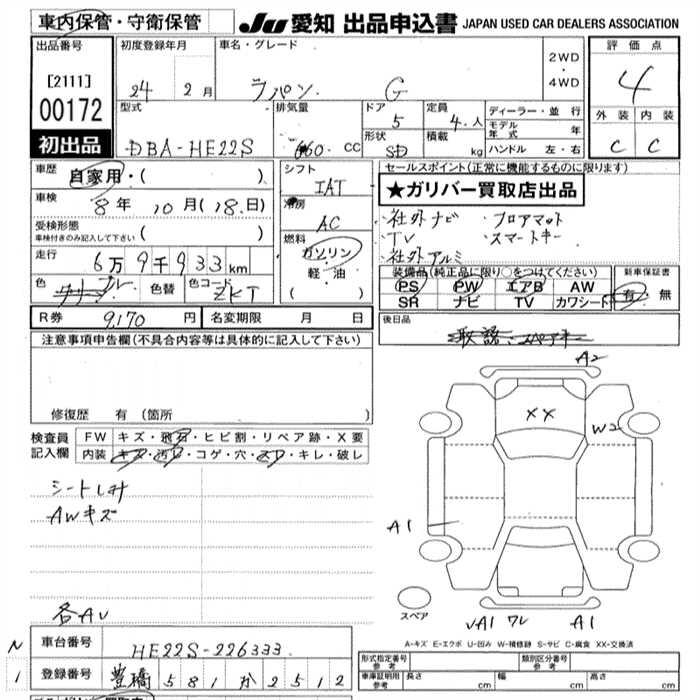 車内保管・守衛保管
JU 愛知 出品申込書 JAPAN USED CAR DEALERS ASSOCIATION
出品番号
[2111]
00172
初出品
初度登録年月
24 2月
車名・グレード
ラパン G
2WD
・
4WD
評価点
4
外装 内装
C C
型式
DBA-HE22S
排気量
660 CC
ドア
5
形状
SD
定員
4人
積載 kg
ディーラー・並行
モデル年式 年
ハンドル 左・右
車歴
自家用・( )
車検
8年 10月(18日)
受検形態
車検付きのみ記入して下さい ( )
走行
6万9千933km
色
ブルー
色替
色コード
ZKT
シフト
IAT
冷房
AC
燃料
ガソリン
軽・油
( )
セールスポイント(正常に機能するものに限ります)
★ガリバー買取店出品
・社外ナビ ・フロアマット
・TV ・スマートキー
・社外アルミ
装備品(純正品に限り○をつけてください)
PS PW エアB AW
SR ナビ TV カワシート
新車保証書
有・無
R券 9,170円
名変期限 月 日
後日品
注意事項申告欄(不具合内容等は具体的に記入して下さい)
修復歴 有(箇所
検査員記入欄
FW キズ・飛石・ヒビ割・リペア跡・X要
内装 キズ・汚レ・コゲ・穴・スレ・キレ・破レ
シートしみ
AWキズ
各AU
A2
XX
W2
A1
スペア
UA1 ワレ A1
A-キズ E-エクボ U-凹み W-補修跡 S-サビ C-腐食 XX-交換済
N
1
車台番号
HE22S-226333
登録番号
豊橋 581 か 2512
形式指定番号
参考
類別区分番号
参考
車庫証明用
参考
長さ cm
幅 cm
高さ cm